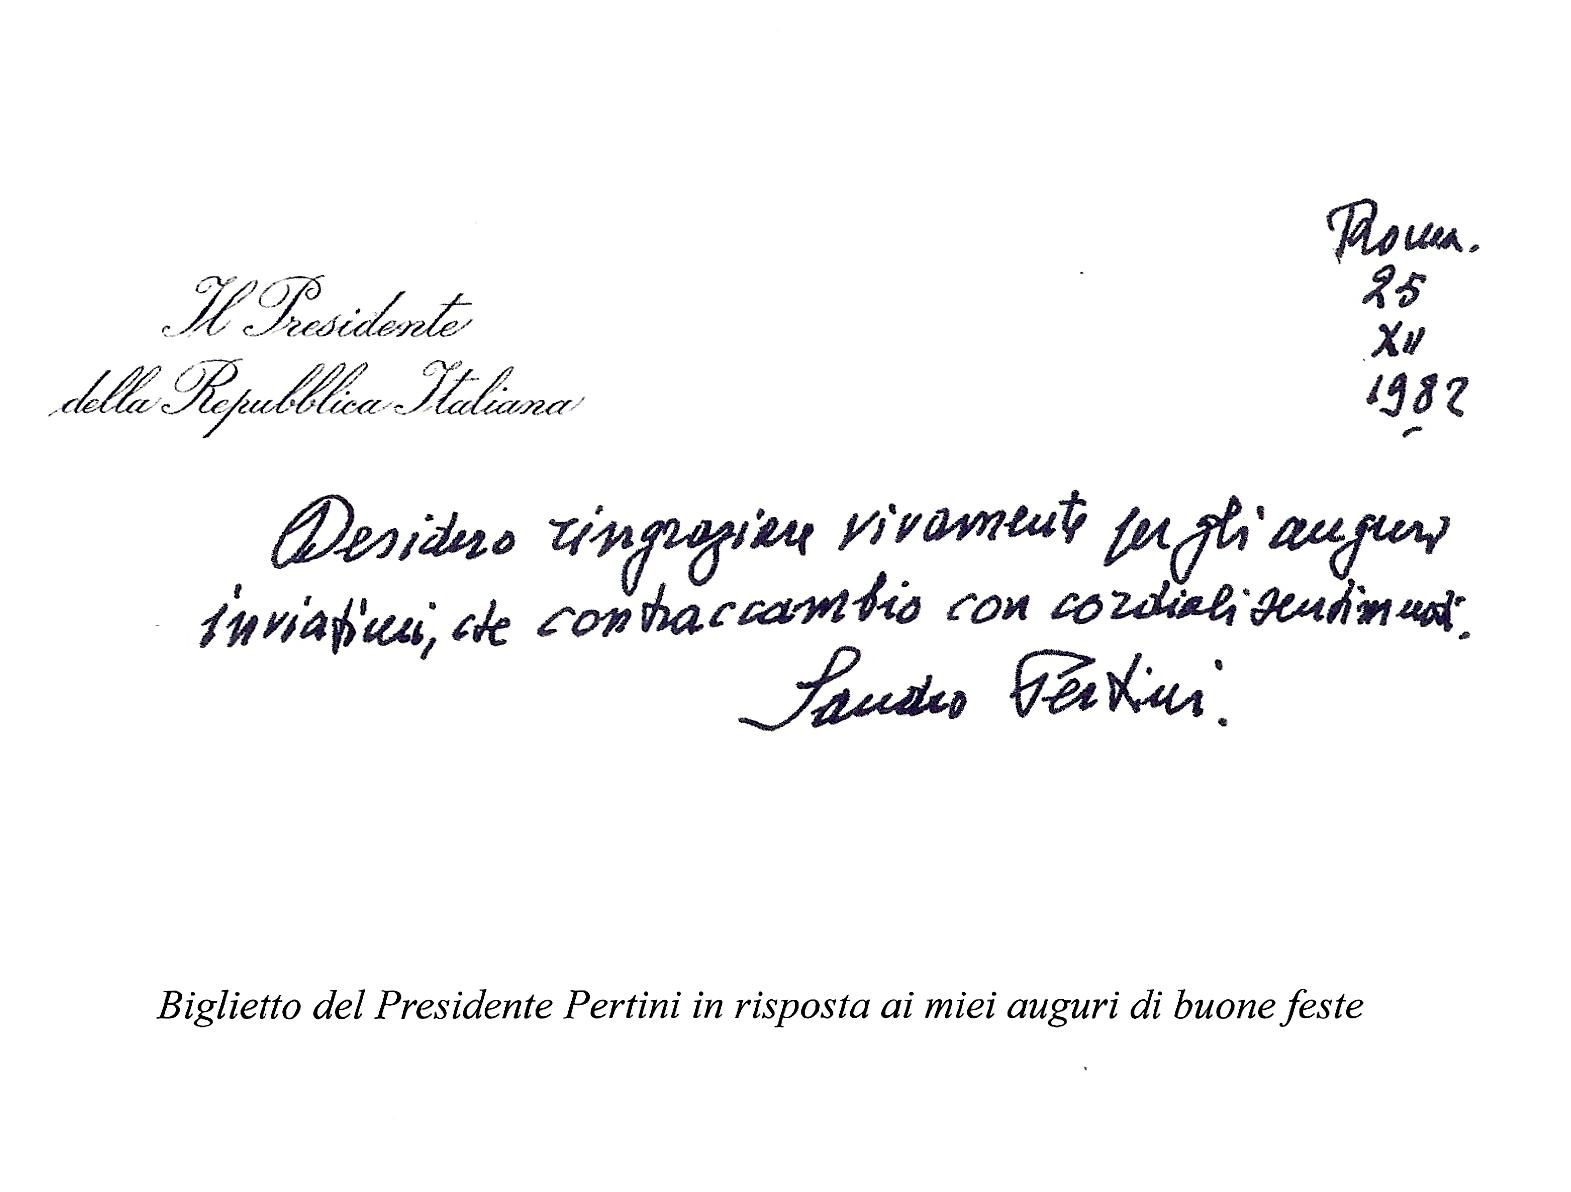 Roma.
25
XII
1982
Il Presidente
della Repubblica Italiana
Desidero ringraziare vivamente per gli auguri
inviatimi, che contraccambio con cordiali sentimenti.
Sandro Pertini.
Biglietto del Presidente Pertini in risposta ai miei auguri di buone feste